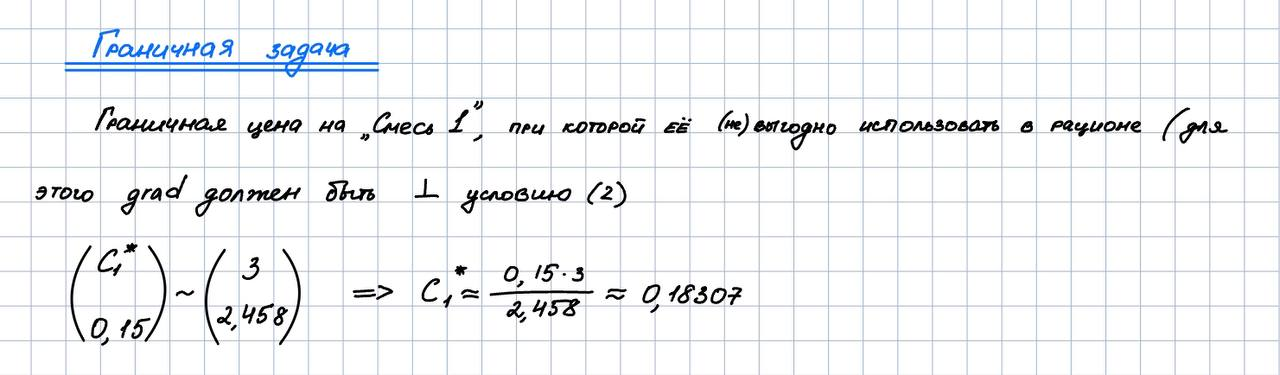 Граничная задача
Граничная цена на „Смесь 1”, при которой её (не) выгодно использовать в рационе (для
этого grad должен быть ⊥ условию (2)
(C₁* 0,15) ~ (3 2,458) => C₁* ≈ 0,15·3 / 2,458 ≈ 0,18307